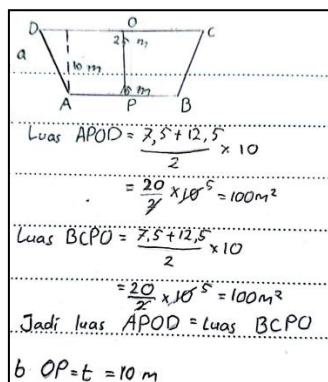 a
D O C
25 m
10 m
15 m
A P B
Luas APOD = 7,5+12,5/2 × 10
= 20/2 × 10 5 = 100 m²
Luas BCPO = 7,5+12,5/2 × 10
= 20/2 × 10 5 = 100 m²
Jadi luas APOD = Luas BCPO
b OP = t = 10 m